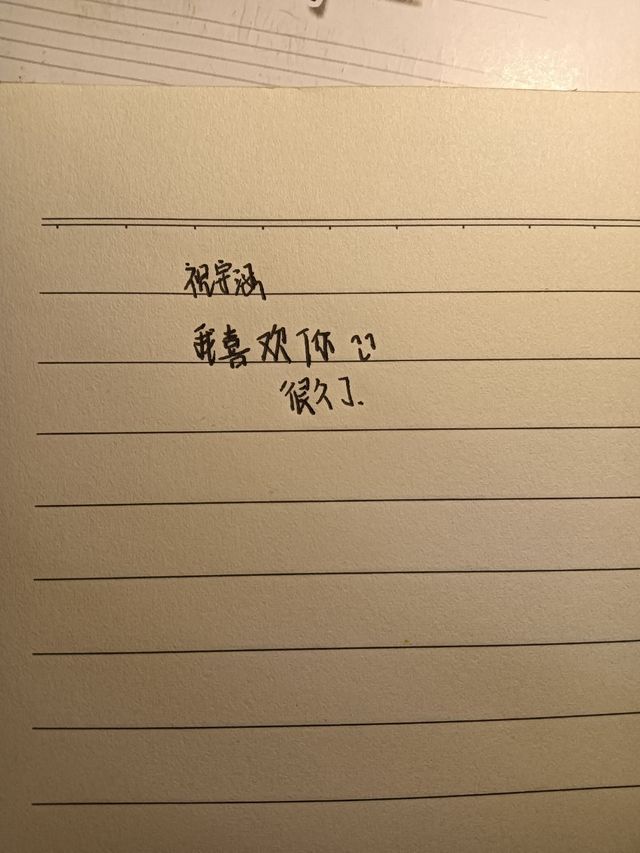 祝宇涵
我喜欢你
很久了.